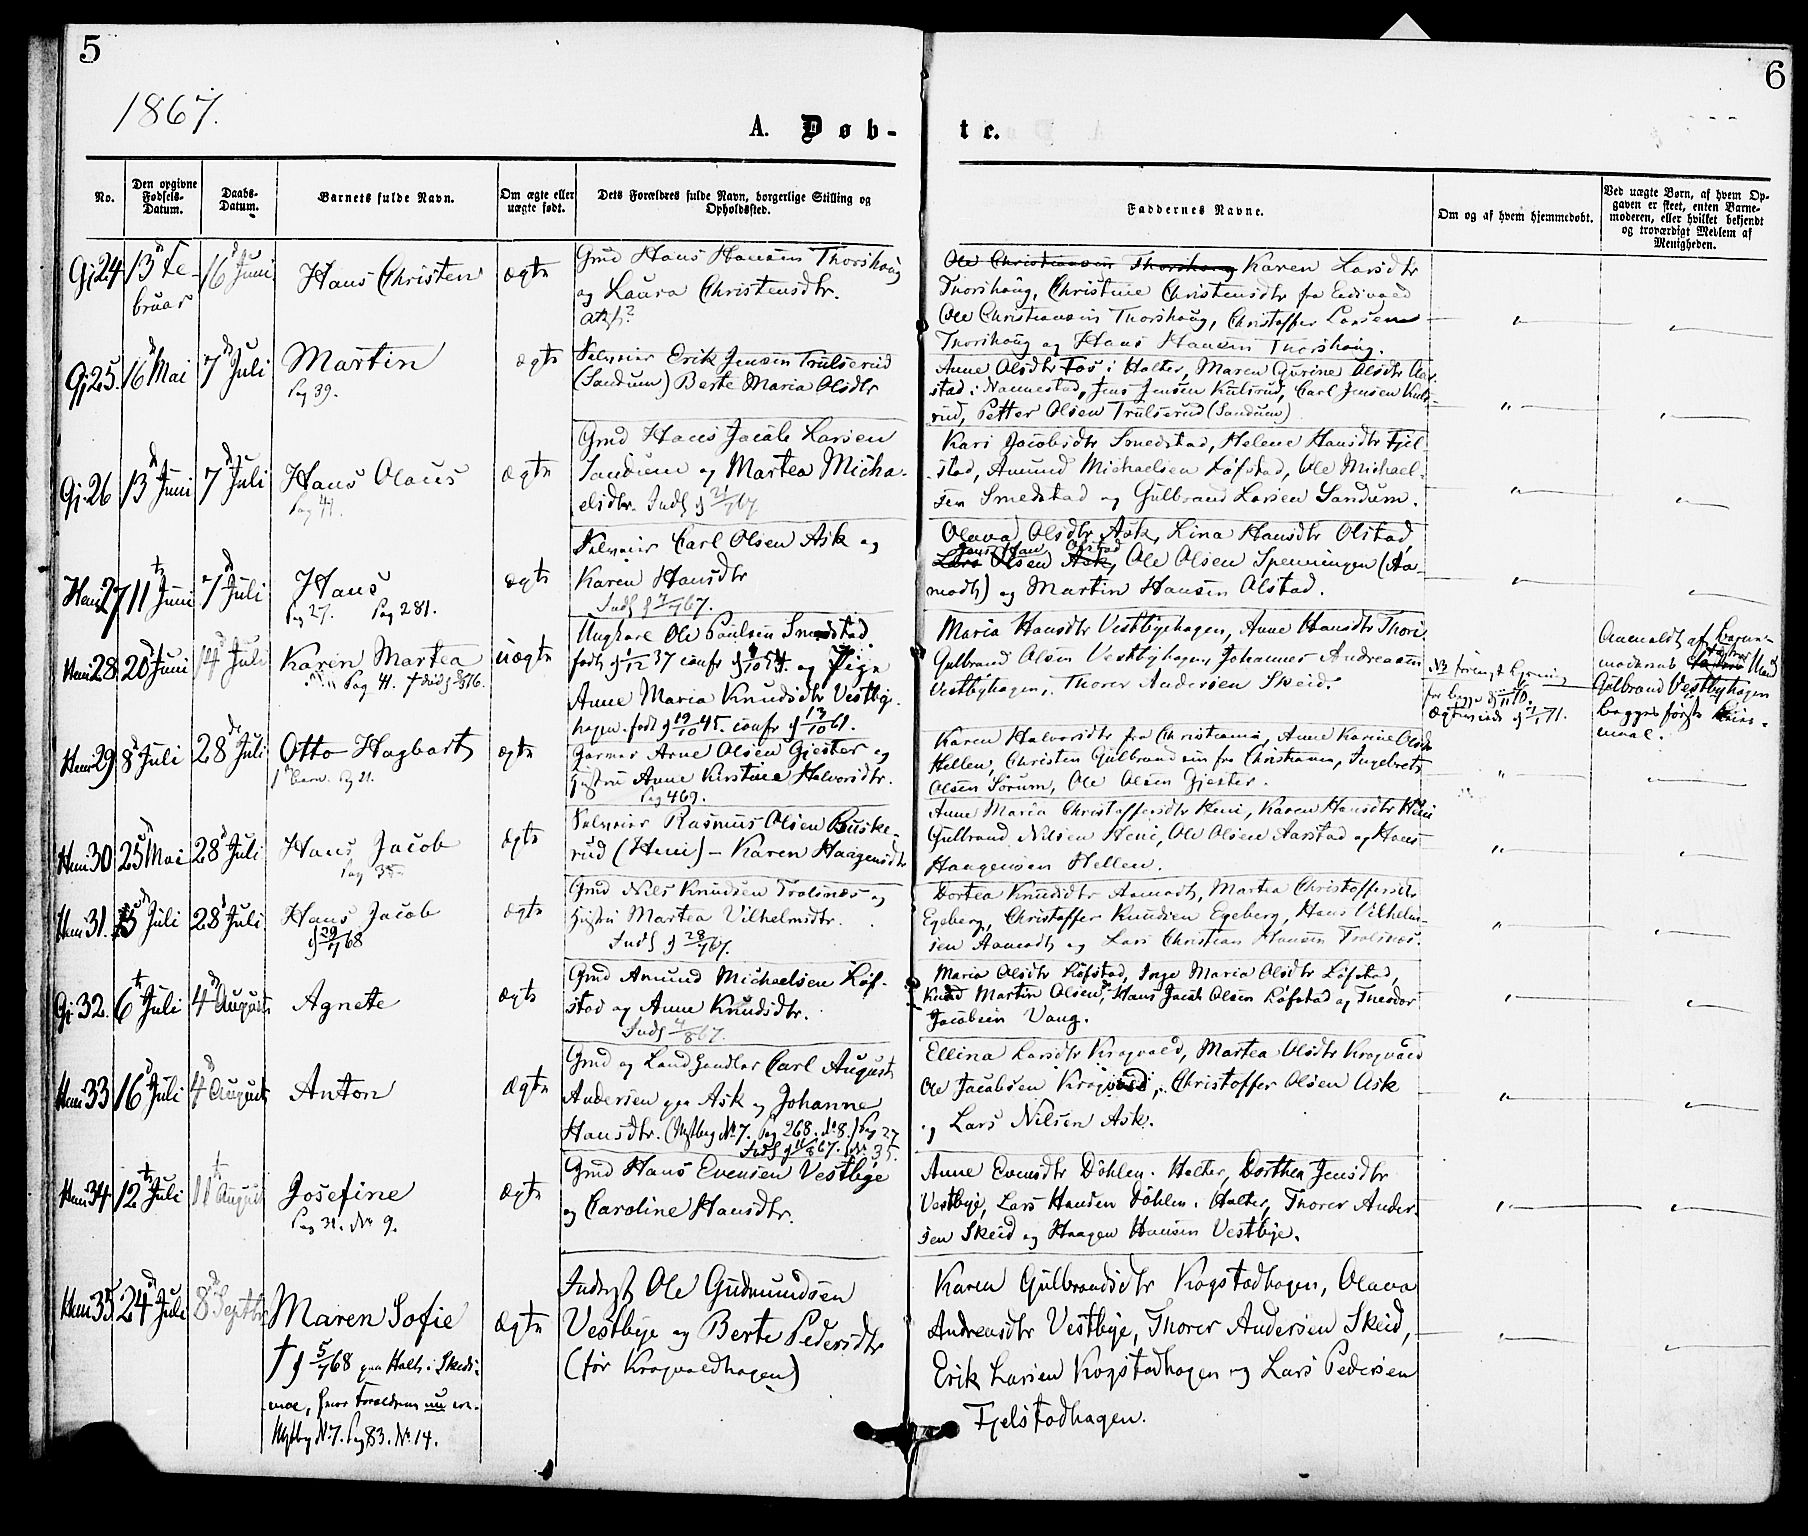 5
6
1867.
A. Døb-
te.
No.
Den opgivne Fødsels-Datum.
Daabs-Datum.
Barnets fulde Navn.
Om ægte eller uægte født.
Dets Forældres fulde Navn, borgerlige Stilling og Opholdssted.
Faddernes Navne.
Om og af hvem hjemmedøbt.
Ved uægte Børn, af hvem Opgaven er skeet, enten Barnemoderen, eller hvilket bekjendt og troværdigt Medlem af Menigheden.
Gj 24
13d Februar
16d Juni
Hans Christen
ægte
Gmd Hans Hansen Thorshoug
og Laura Christensdtr.
Ask?
Ole Christiansen Thorshoug Karen Larsdtr
Thorshoug, Christine Christensdtr fra Eidsvold
Ole Christiansen Thorshoug, Christoffer Larsen
Thorshoug og Hans Hansen Thorshoug.
Gj 25.
16d Mai
7d Juli
Martin
Pag 39.
ægte
Selveier Erik Jensen Trulserud
(Sandum) Berte Maria Olsdtr
Anne Olsdtr Fos i Holter, Maren Gurine Olsdtr Aar-
stad i Nannestad, Jens Jensen Kulsrud, Carl Jensen Kuls-
rud, Petter Olsen Trulserud (Sandum)
Gj 26
13d Juni
7d Juli
Hans Olaus
Pag 41.
ægte
Gmd Hans Jacob Larsen
Sandum og Martea Micha-
elsdtr. Inds d 21/7 67
Kari Jacobsdtr Smedstad, Helene Hansdtr Fjel-
stad, Amund Michaelsen Løfstad, Ole Michael-
sen Smedstad og Gulbrand Larsen Sandum.
Heni 27
11t Juni
7d Juli
Hans
Pag 27. Pag 281.
ægte
Selveier Carl Olsen Ask og
Karen Hansdtr
Inds d 7/7 67.
Olava Olsdtr Ask, Lina Hansdtr Olstad,
Lars Olsen Ask, Ole Olsen Spenningen (Aa-
modt) og Martin Hansen Olstad.
Heni 28.
20d Juni
14d Juli
Karen Martea
Pag 41.
uægte
Ungkarl Ole Paulsen Smedstad
Anne Maria Knudsdtr Vestby-
hagen. født d 19/10 45. confr d 13/10 61.
Maria Hansdtr Vestbyehagen, Anne Hansdtr Thori
Gulbrand Olsen Vestbyhagen, Johannes Andreasen
Vestbyhagen, Thorer Andersen Skeid.
Anmeldt af
Gulbrand Vestbyhagen
begges første Leier-
maal.
Heni 29.
8d Juli
28d Juli
Otto Hagbart
Pag 21.
ægte
Garver Arne Olsen Gjester og
Hustru Anne Kirstine Halvorsdtr.
Pag 469.
Karen Halvorsdtr fra Christiania, Anne Karine Olsdtr
Hellen, Christen Gulbrandsen fra Christiania, Ingebret
Olsen Sørum, Ole Olsen Gjester.
Heni 30
25d Mai
28d Juli
Hans Jacob
Pag 35
ægte
Selveier Rasmus Olsen Buske-
rud (Heni) - Karen Haagensdtr
Anne Maria Christoffersdtr Heni, Karen Hansdtr Heni
Gulbrand Nilsen Heni, Ole Olsen Aarstad og Hans
Haagensen Hellen.
Heni 31.
15d Juli
28d Juli
Hans Jacob
d 29/7 68
ægte
Gmd Nils Knudsen Trolsnæs og
Hustru Martea Vilhelmsdtr.
Inds d 28/7 67.
Dortea Knudsdtr Aamodt, Martea Christoffersdtr
Egeberg, Christoffer Knudsen Egeberg, Hans Vilhelm-
sen Aamodt og Lars Christian Hansen Trolsnæs.
Gj 32.
6t Juli
4d August
Agnete
ægte
Gmd Amund Michaelsen Løf-
stad og Anne Knudsdtr.
Inds 4/8 67.
Maria Olsdtr Løfstad, Inge Maria Olsdtr Løfstad,
Knud Martin Olsen, Hans Jacob Olsen Løfstad og Theodor
Jacobsen Vang.
Heni 33
16d Juli
4d August
Anton
ægte
Gmd og Landhandler Carl August
Andersen paa Ask og Johanne
Hansdtr. (Mstbog No 7. Pag 268. No 8.) Pag 27
No 35.
Ellina Larsdtr Kragvold, Martea Olsdtr Kragvold
Ole Jacobsen Kragvold, Christoffer Olsen Ask
og Lars Nilsen Ask.
Heni 34
12t Juli
11t August
Josefine
Pag 31. No 9.
ægte
Gmd Hans Evensen Vestbye
og Caroline Hansdtr.
Anne Evensdtr Döhlen i Holter, Dorthea Jensdtr
Vestbye, Lars Hansen Döhlen i Holter, Thorer Ander-
sen Skeid og Haagen Hansen Vestbye.
Heni 35
24d Juli
8d Septbr
Maren Sofie
† d 5/7 68 paa Holt i Skeds-
moe, hvor Forældrene nu ere.
Mstbog No 7. Pag 83. No 14.
ægte
Inderst Ole Gudmundsen
Vestbye og Berte Pedersdtr
(før Kragvoldhagen)
Karen Gulbrandsdtr Kogstadhagen, Olava
Andreasdtr Vestbye, Thorer Andersen Skeid,
Erik Larsen Kogstadhagen og Lars Pedersen
Fjelstadhagen.